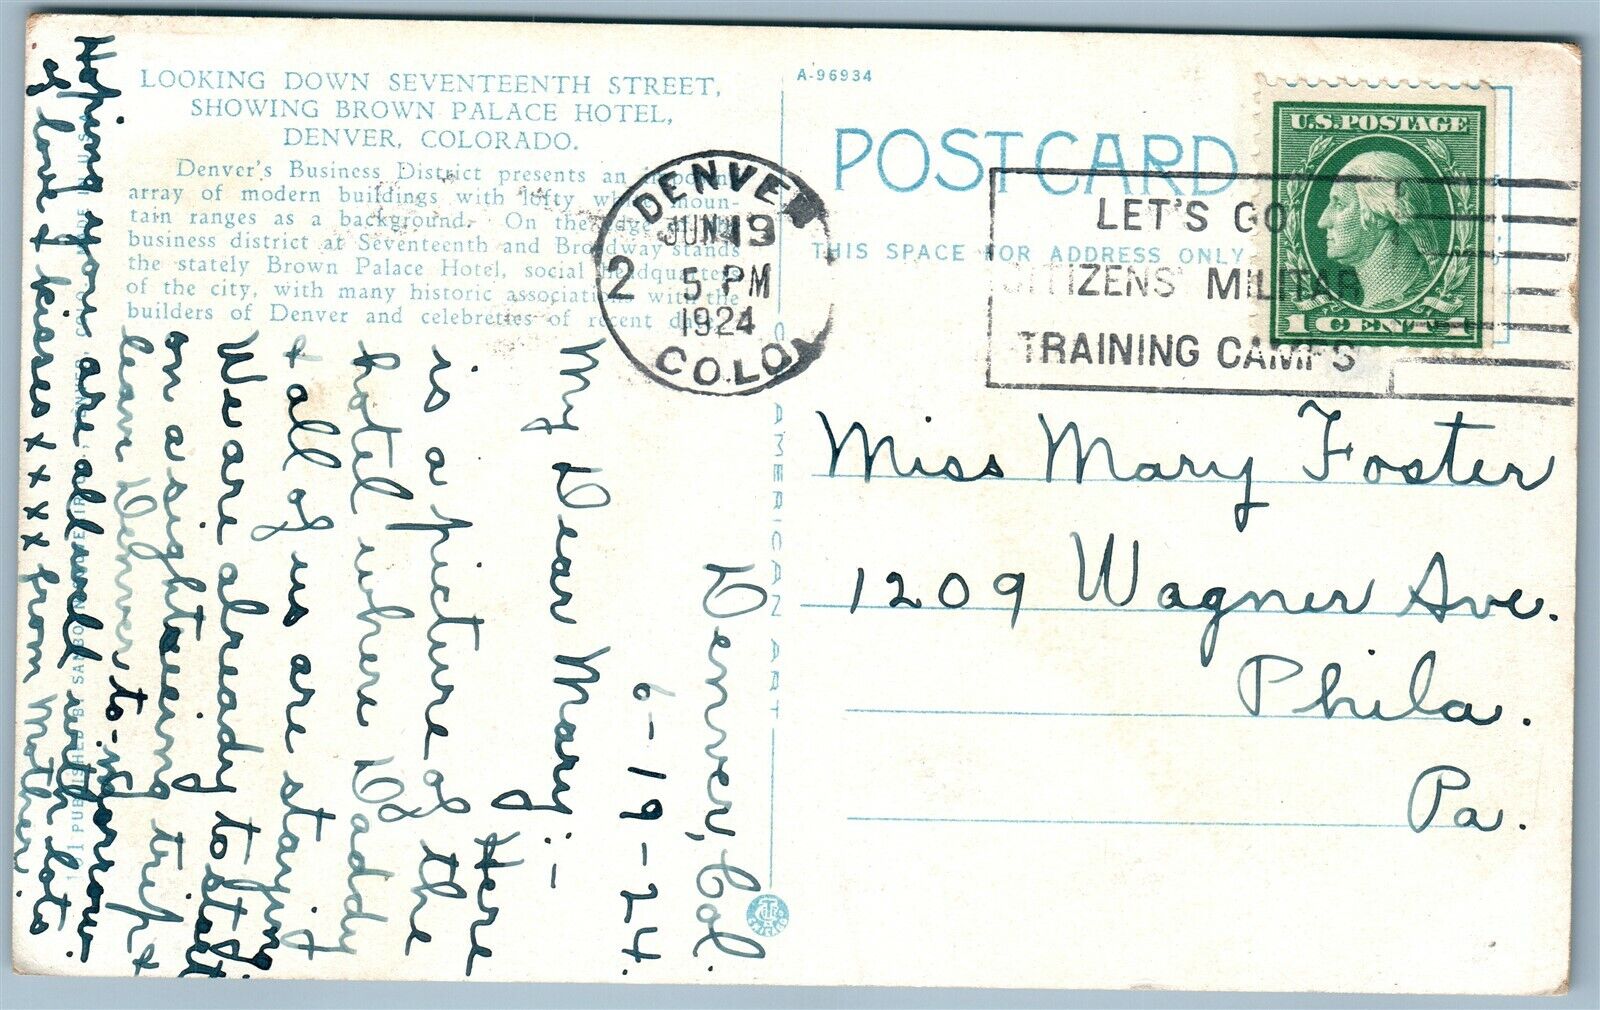 LOOKING DOWN SEVENTEENTH STREET,
SHOWING BROWN PALACE HOTEL,
DENVER, COLORADO.
Denver's Business District presents an
array of modern buildings with lofty moun-
tain ranges as a background. On the edge
business district at Seventeenth and Broadway stands
the stately Brown Palace Hotel, social headquarters
of the city, with many historic associations with the
builders of Denver and celebreties of recent
A-96934
POSTCARD
THIS SPACE FOR ADDRESS ONLY
AMERICAN ART
U.S. POSTAGE
1 CENT 1
DENVER
JUN 19
5 PM
1924
COLO
2
LET'S GO
CITIZENS' MILITARY
TRAINING CAMPS
Miss Mary Foster
1209 Wagner Ave.
Phila.
Pa.
Denver, Col.
6-19-24.
My Dear Mary:-
Here
is a picture of the
hotel where Daddy
& all of us are staying
We are already to start
on a sightseeing trip &
leave Denver, to-morrow
Hoping you are all well with lots
of love & kisses xxxx from Mother.
PUBLISHED BY SANBORN